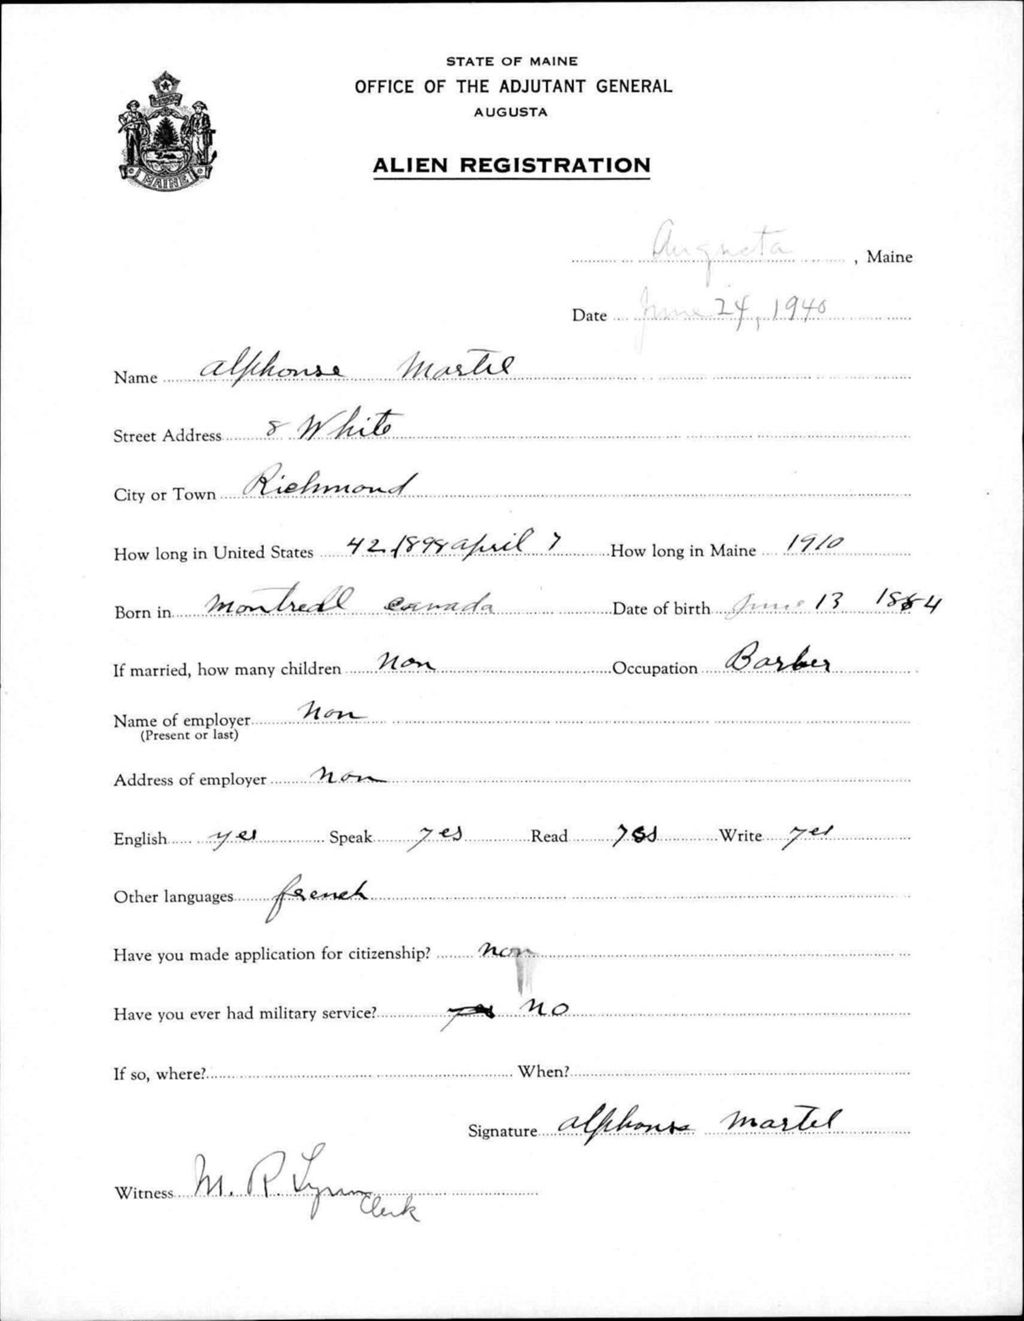 STATE OF MAINE
OFFICE OF THE ADJUTANT GENERAL
AUGUSTA
ALIEN REGISTRATION
MAINE
Augusta, Maine
Date June 24, 1940
Name Alphonse Martel
Street Address 8 White
City or Town Richmond
How long in United States 42 1898 april 7 How long in Maine 1910
Born in Montreall Canada Date of birth June 13 1884
If married, how many children Non Occupation Barber
Name of employer Non
(Present or last)
Address of employer Non
English yes Speak yes Read yes Write yes
Other languages french
Have you made application for citizenship? Non
Have you ever had military service? yes NO
If so, where? When?
Signature Alphonse Martel
Witness M. R. Lynn
Clerk